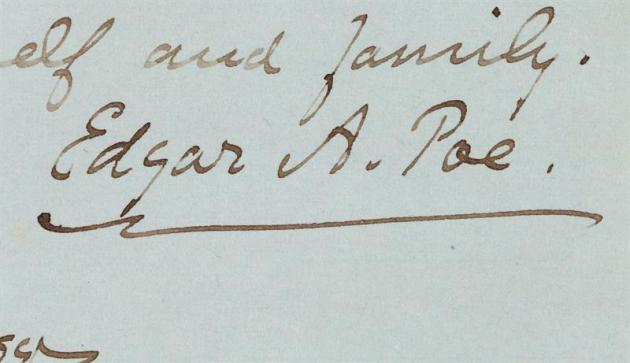 elf and family.
Edgar A. Poe.